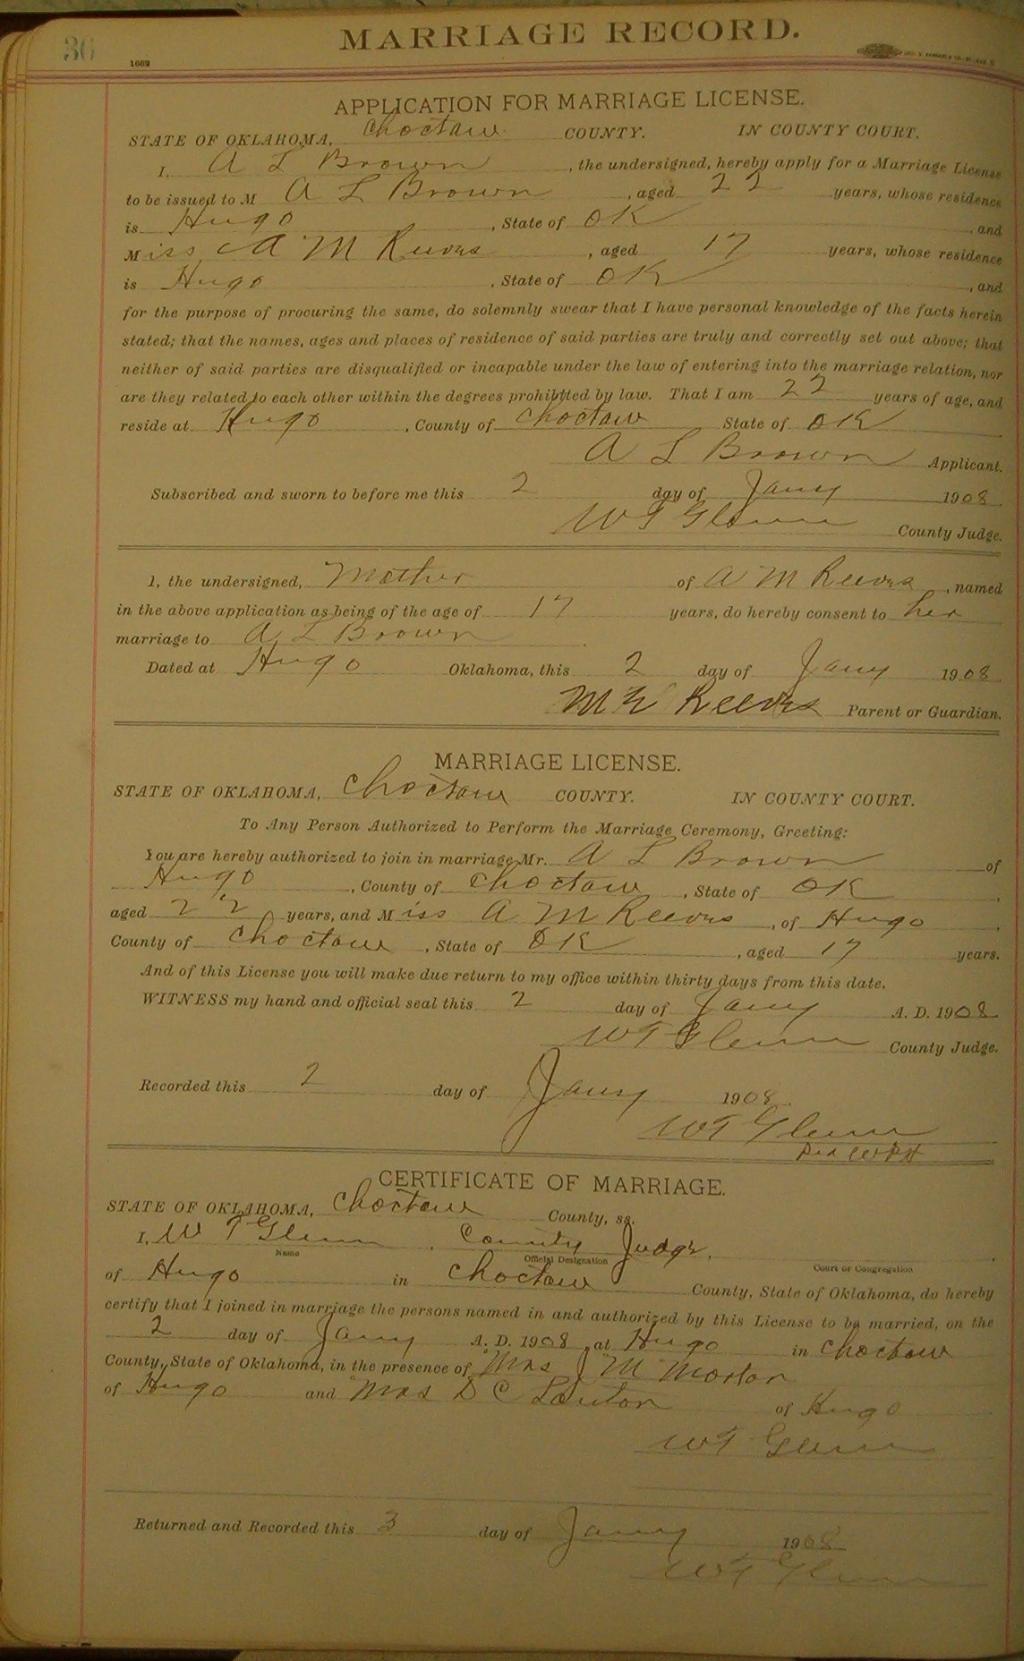 36
MARRIAGE RECORD.
1662
APPLICATION FOR MARRIAGE LICENSE.
STATE OF OKLAHOMA, Choctaw COUNTY. IN COUNTY COURT.
I, A L Brown, the undersigned, hereby apply for a Marriage License
to be issued to M A L Brown, aged 22 years, whose residence
is Hugo, State of OK, and
Miss A M Reeves, aged 17 years, whose residence
is Hugo, State of OK, and
for the purpose of procuring the same, do solemnly swear that I have personal knowledge of the facts herein
stated; that the names, ages and places of residence of said parties are truly and correctly set out above; that
neither of said parties are disqualified or incapable under the law of entering into the marriage relation, nor
are they related to each other within the degrees prohibited by law. That I am 22 years of age, and
reside at Hugo, County of Choctaw State of OK
A L Brown Applicant.
Subscribed and sworn to before me this 2 day of Jany 1908
W T Glenn County Judge.
I, the undersigned, Mother of A M Reeves, named
in the above application as being of the age of 17 years, do hereby consent to her
marriage to A L Brown
Dated at Hugo Oklahoma, this 2 day of Jany 1908
Reeves Parent or Guardian.
MARRIAGE LICENSE.
STATE OF OKLAHOMA, Choctaw COUNTY. IN COUNTY COURT.
To Any Person Authorized to Perform the Marriage Ceremony, Greeting:
You are hereby authorized to join in marriage Mr. A L Brown of
Hugo, County of Choctaw, State of OK,
aged 22 years, and Miss A M Reeves, of Hugo,
County of Choctaw, State of OK, aged 17 years.
And of this License you will make due return to my office within thirty days from this date.
WITNESS my hand and official seal this 2 day of Jany A. D. 1908
W T Glenn County Judge.
Recorded this 2 day of Jany 1908
W T Glenn
CERTIFICATE OF MARRIAGE.
STATE OF OKLAHOMA, Choctaw County, ss.
I, W T Glenn, County Judge,
Name Official Designation Court or Congregation
of Hugo in Choctaw County, State of Oklahoma, do hereby
certify that I joined in marriage the persons named in and authorized by this License to be married, on the
2 day of Jany A. D. 1908, at Hugo in Choctaw
County, State of Oklahoma, in the presence of Mrs J M Morton
of Hugo and Mrs D C of Hugo
W T Glenn
Returned and Recorded this 3 day of Jany 1908
W T Glenn